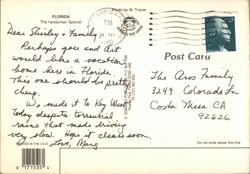 FLORIDA
The handyman Special
Photo by M. Traver
PM
Dear Shirley & Family,
Perhaps you and Art
would like a vacation
home here in Florida.
This one should be pretty
cheap.
We made it to Key West
today despite torrential
rains that made driving
very slow. Hope it clears soon.
Love, Marg
Post Card
The Aros Family
3249 Colorado Ln
Costa Mesa CA
92626
0 171535
Do not write below this line